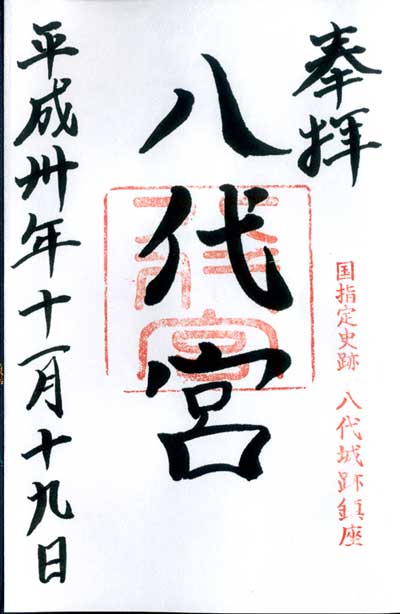 奉拝
国指定史跡 八代城跡鎮座
八代宮
八代宮
平成卅年十一月十九日